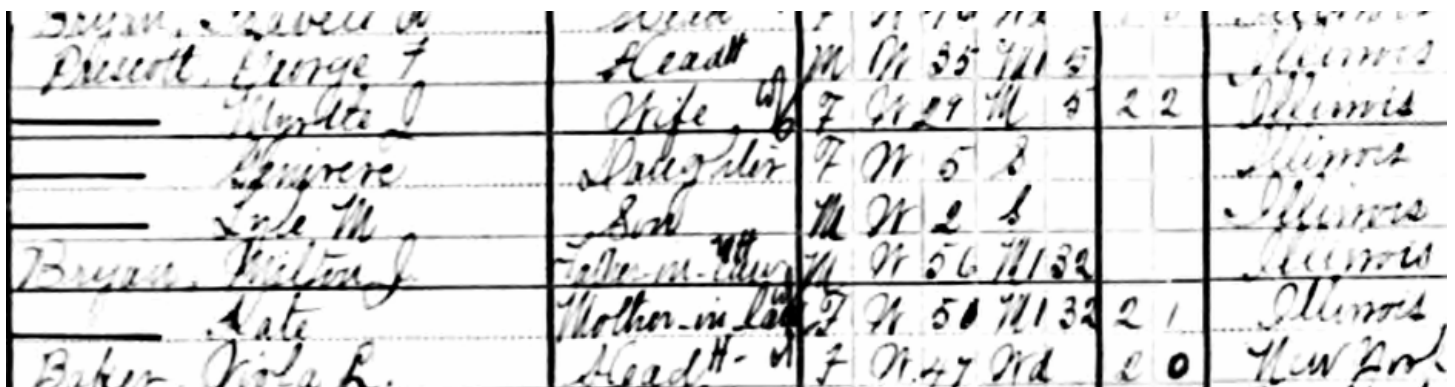 Bryan,
Prescott, George F Head M W 35 M1 5 Illinois
Myrtle J Wife F W 29 M 5 2 2 Illinois
Daughter F W 5 S Illinois
M Son M W 2 S Illinois
Bryan, Milton J Father-in-law M W 56 M1 32 Illinois
Kate Mother-in-law F W 50 M1 32 2 1 Illinois
Baker, Viola R. Head F W 47 Wd 2 0 New York